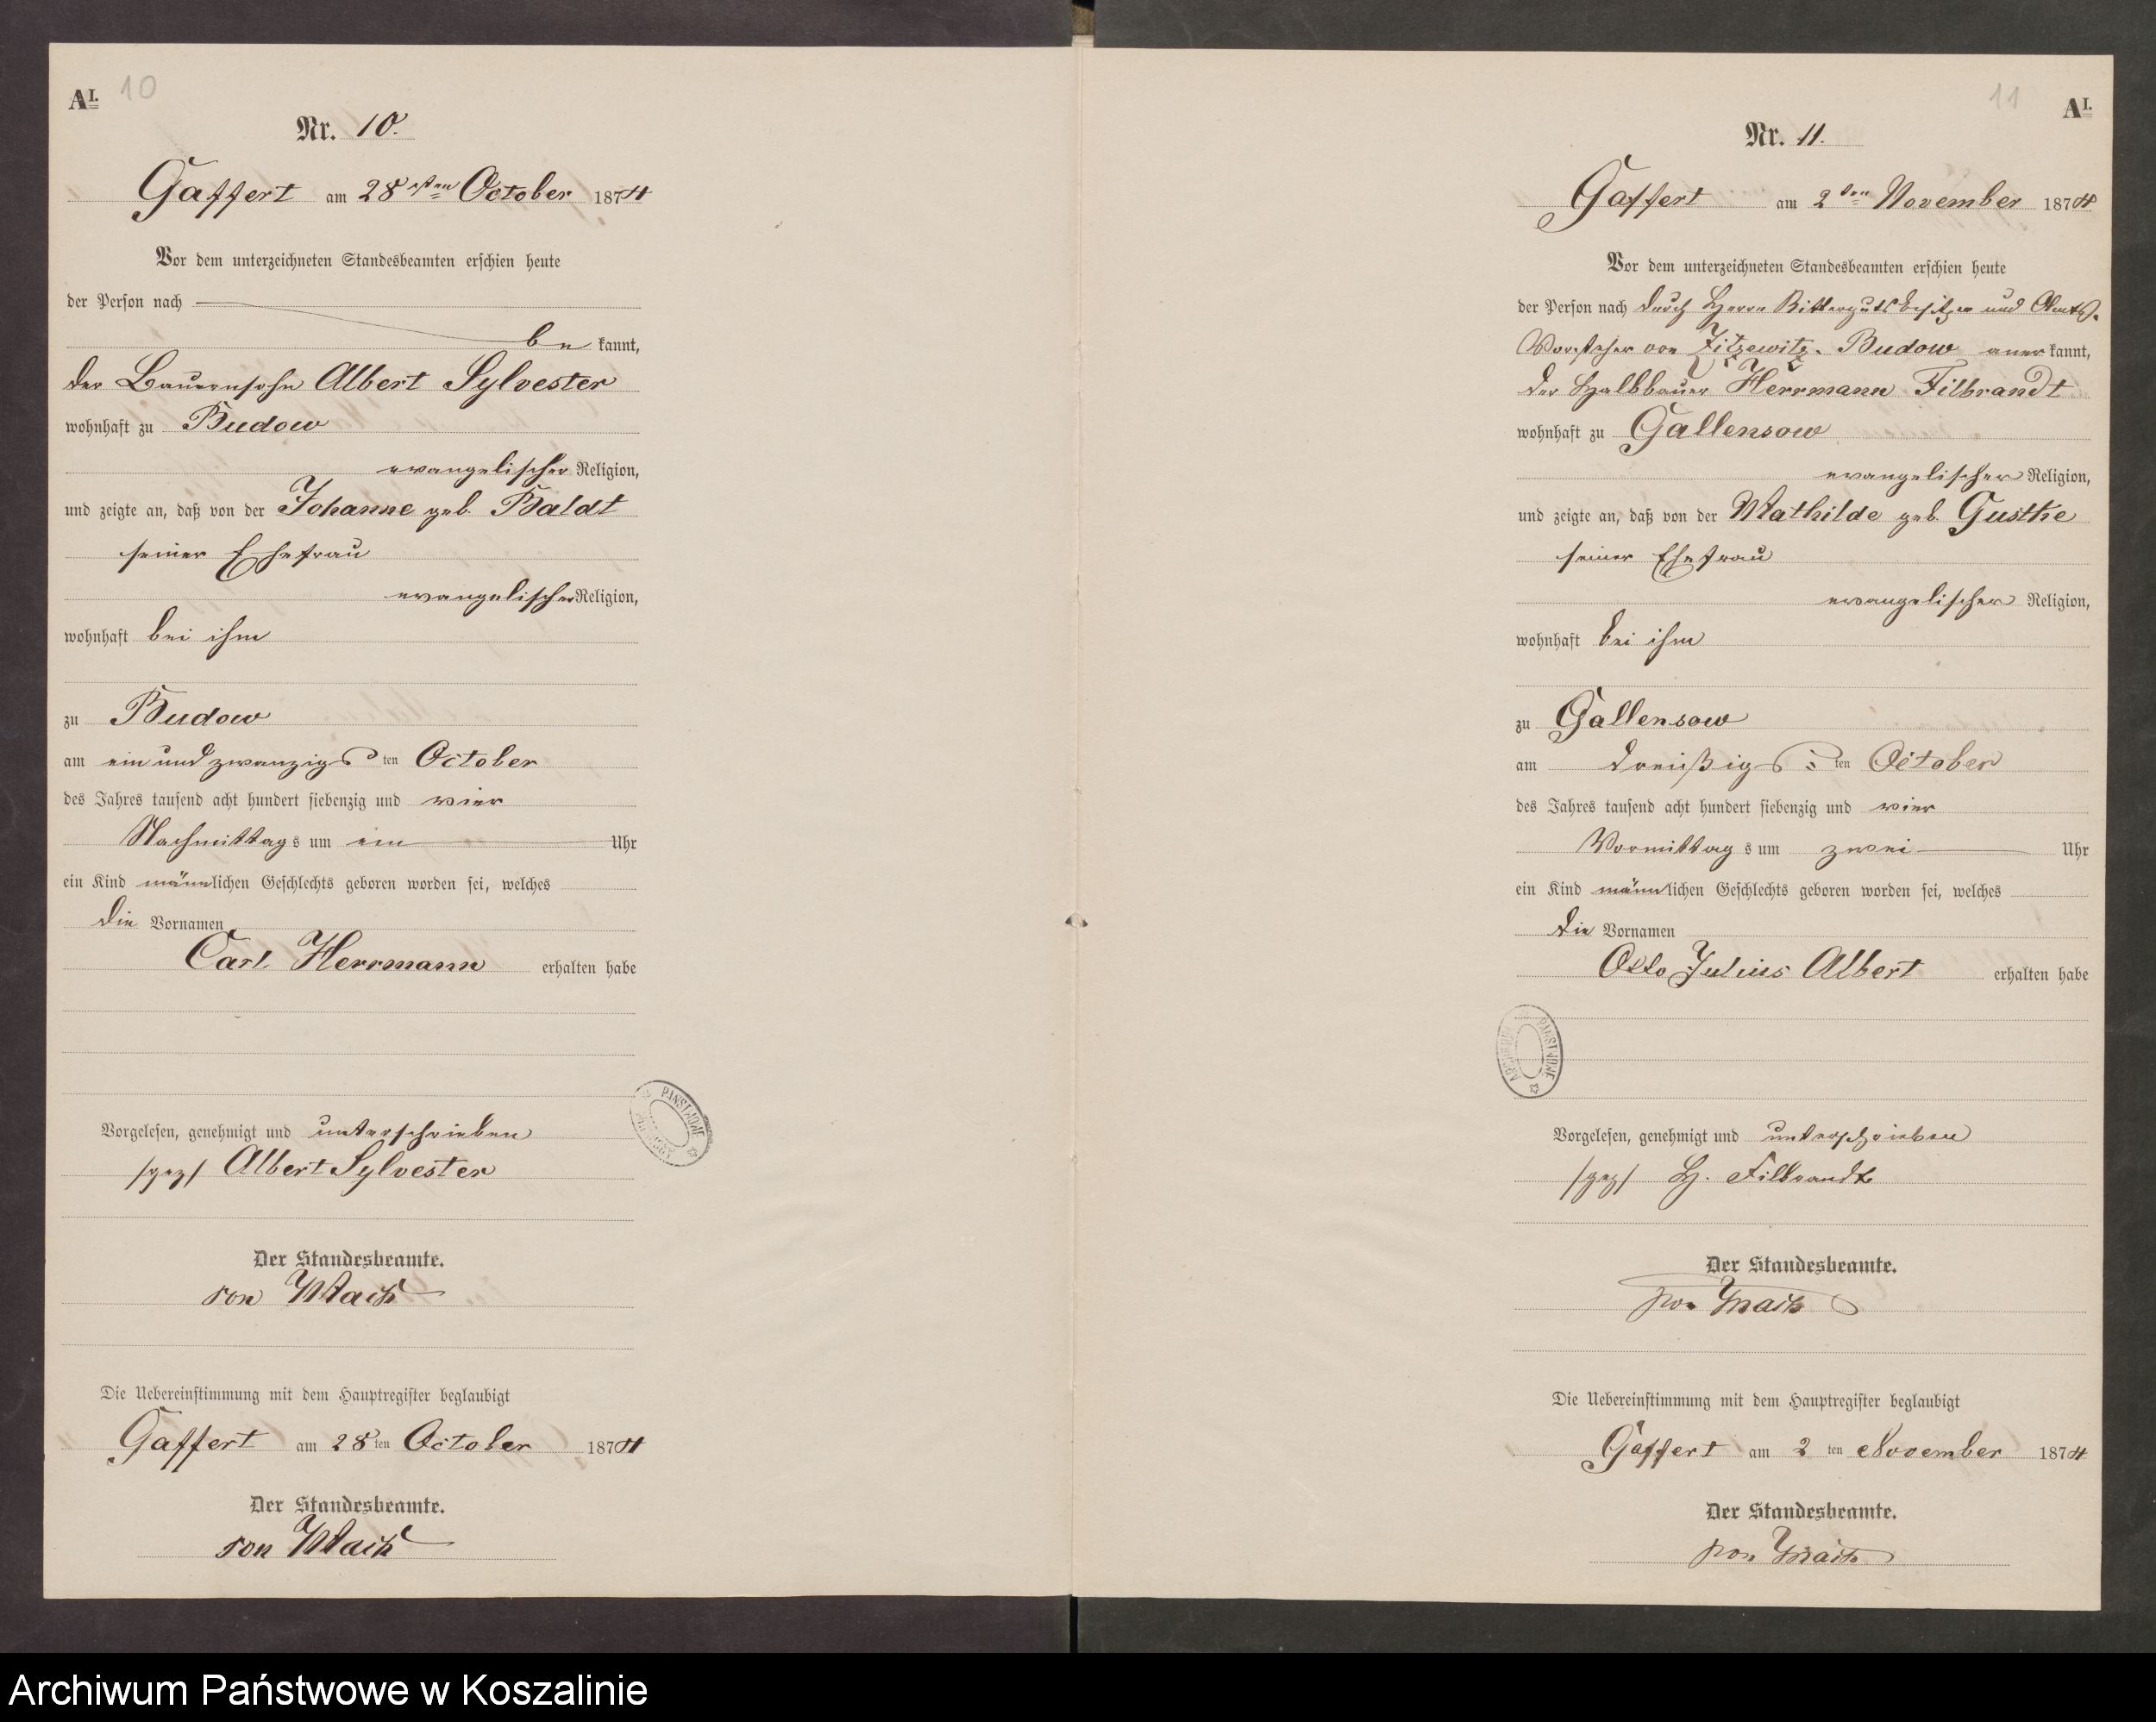 AI. 10
Nr. 10.
Gaffert am 28sten October 1874
Vor dem unterzeichneten Standesbeamten erschien heute
der Person nach
be kannt,
der Bauernsohn Albert Sylvester
wohnhaft zu Budow
evangelischer Religion,
und zeigte an, daß von der Johanne geb. Baldt
seiner Ehefrau
evangelischer Religion,
wohnhaft bei ihm
zu Budow
am ein und zwanzigsten October
des Jahres tausend acht hundert siebenzig und vier
Nachmittags um ein Uhr
ein Kind männlichen Geschlechts geboren worden sei, welches
die Vornamen
Carl Herrmann erhalten habe
Vorgelesen, genehmigt und unterschrieben
/gez/ Albert Sylvester
Der Standesbeamte.
von Mach
Die Uebereinstimmung mit dem Hauptregister beglaubigt
Gaffert am 28ten October 1874
Der Standesbeamte.
von Mach
ARCHIWUM PAŃSTWOWE
11 AI.
Nr. 11.
Gaffert am 2ten November 1874
Vor dem unterzeichneten Standesbeamten erschien heute
der Person nach durch Herrn Rittergutsbesitzer und Amts-
Vorsteher von Zitzewitz-Budow aner kannt,
der Halbbauer Herrmann Filbrandt
wohnhaft zu Gallensow
evangelischer Religion,
und zeigte an, daß von der Mathilde geb. Gustke
seiner Ehefrau
evangelischer Religion,
wohnhaft bei ihm
zu Gallensow
am dreißigsten October
des Jahres tausend acht hundert siebenzig und vier
Vormittags um zwei Uhr
ein Kind männlichen Geschlechts geboren worden sei, welches
die Vornamen
Otto Julius Albert erhalten habe
ARCHIWUM PAŃSTWOWE
Vorgelesen, genehmigt und unterschrieben
/gez/ H. Filbrandt
Der Standesbeamte.
von Mach
Die Uebereinstimmung mit dem Hauptregister beglaubigt
Gaffert am 2 ten November 1874
Der Standesbeamte.
von Mach
Archiwum Państwowe w Koszalinie